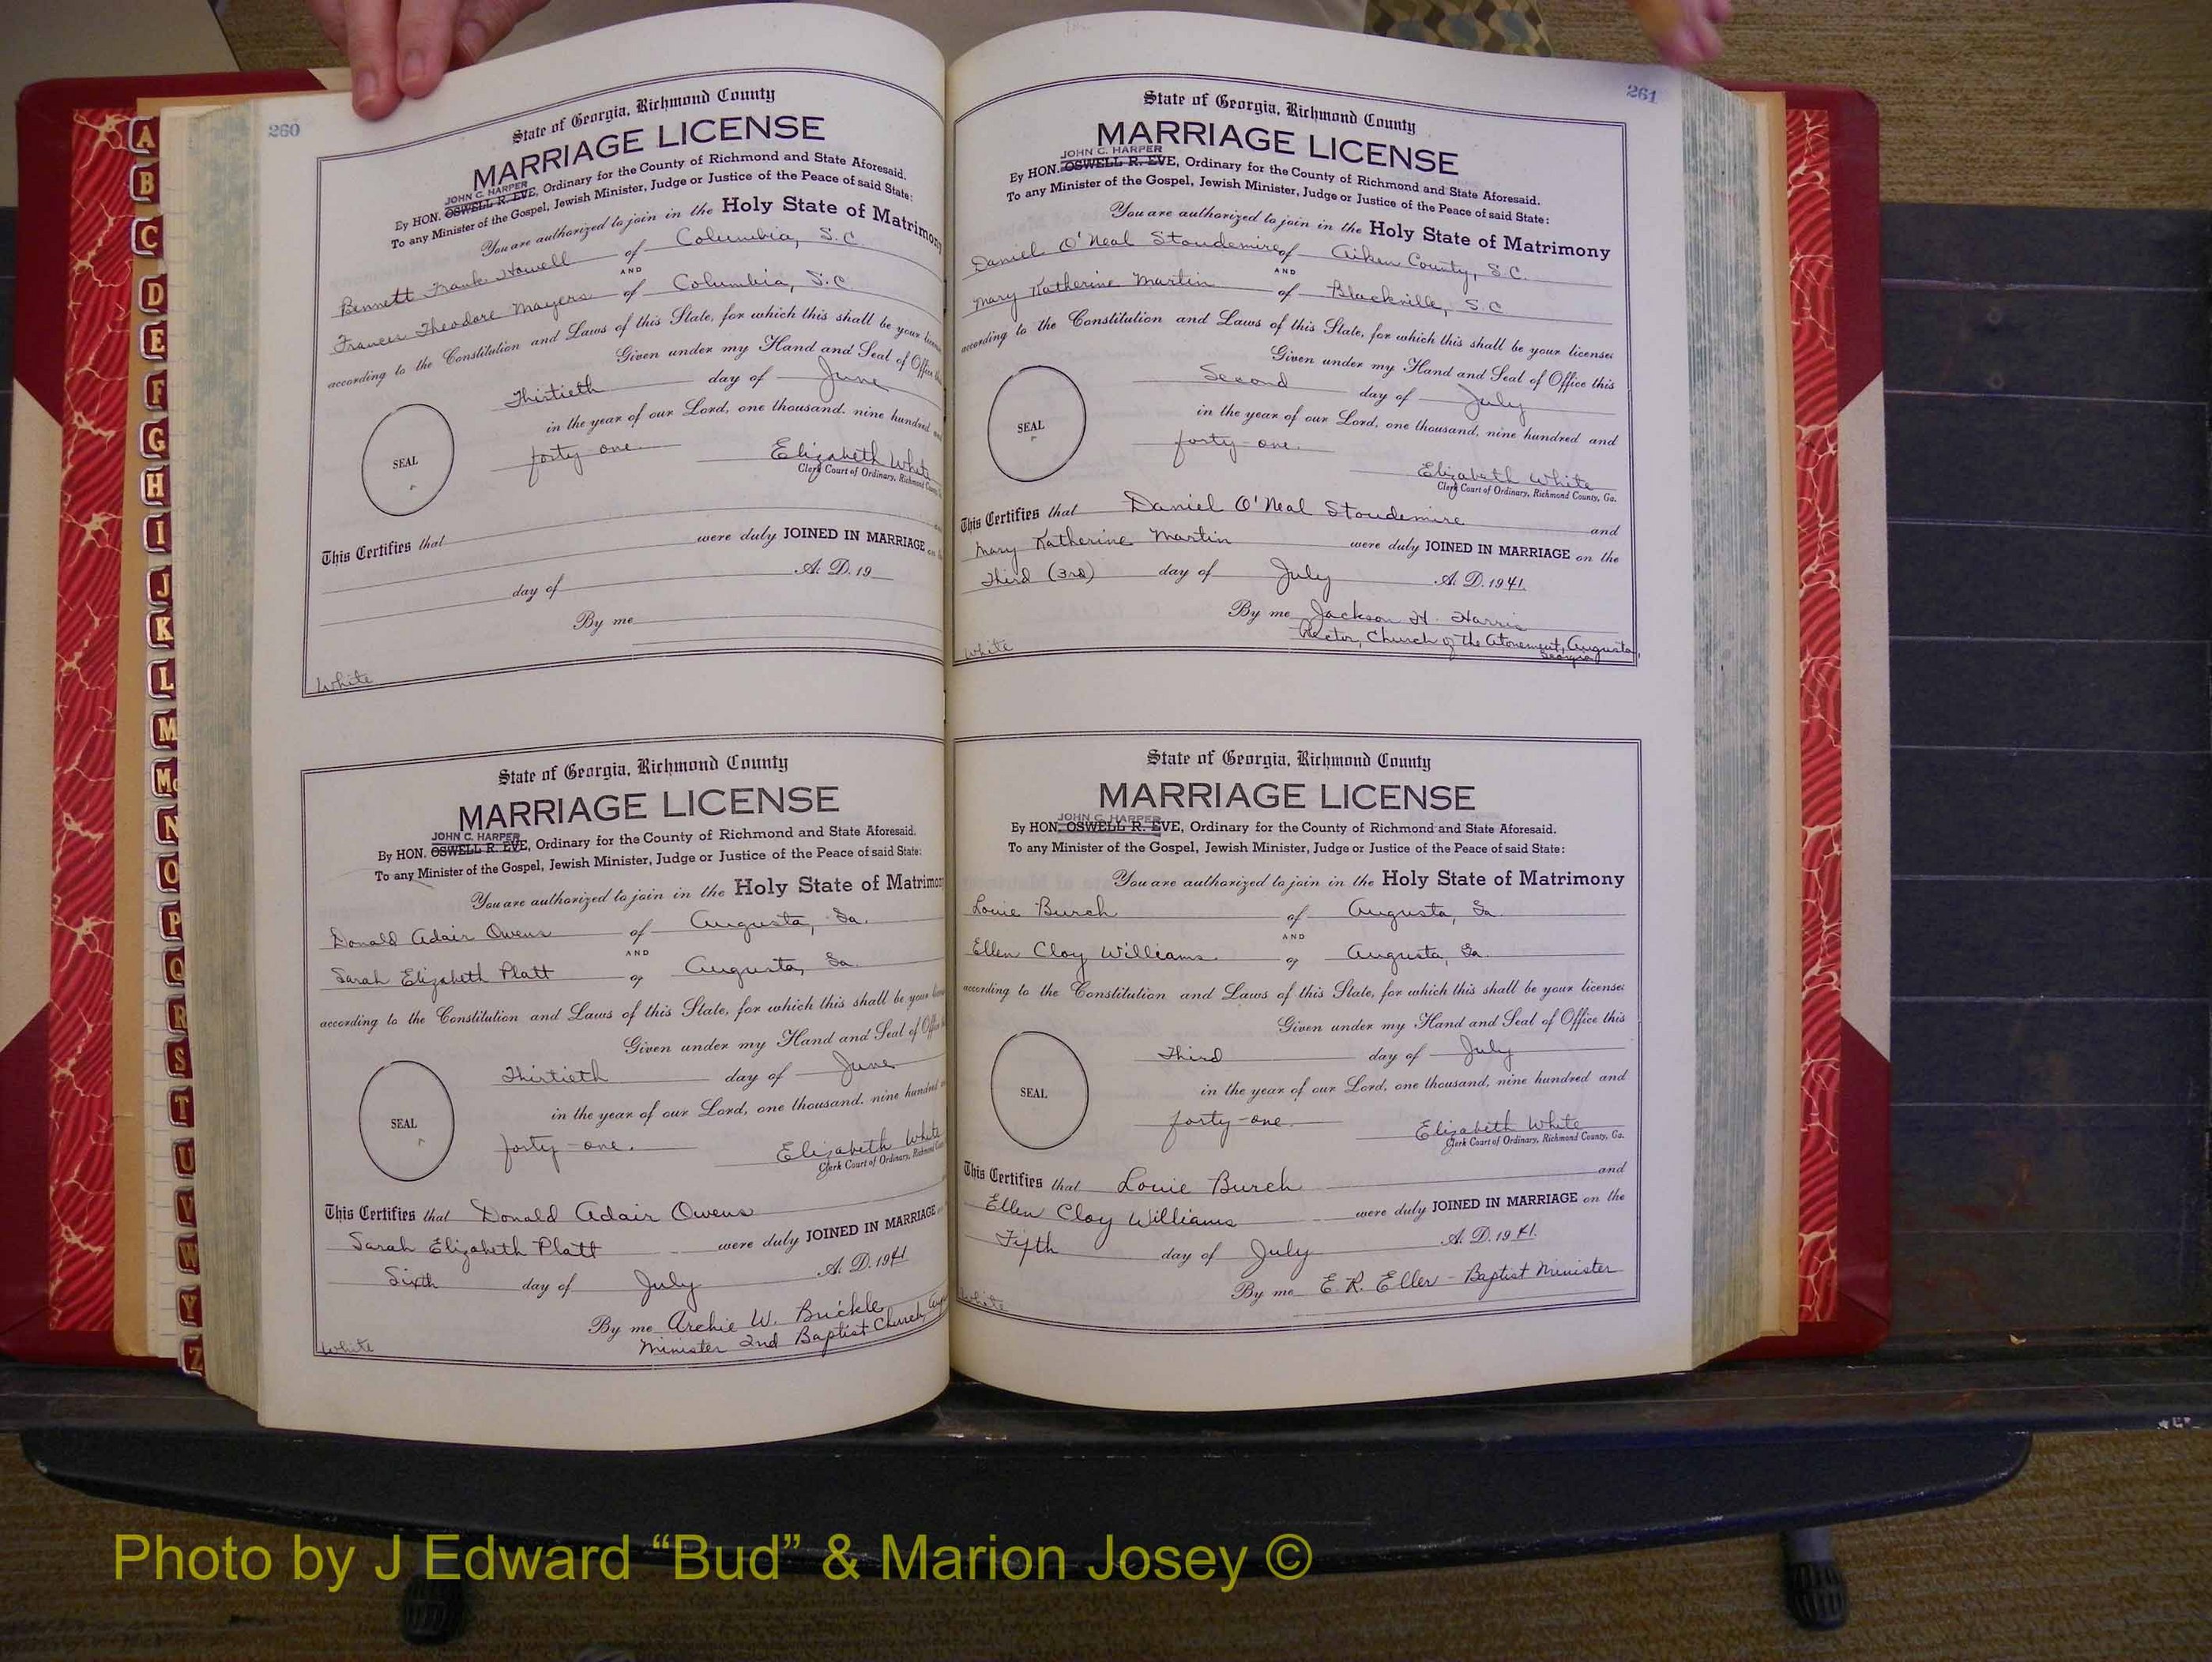 260
State of Georgia, Richmond County
MARRIAGE LICENSE
JOHN C. HARPER
By HON. OSWELL R. EVE, Ordinary for the County of Richmond and State Aforesaid.
To any Minister of the Gospel, Jewish Minister, Judge or Justice of the Peace of said State:
You are authorized to join in the Holy State of Matrimony
Bennett Frank Howell of Columbia, S.C.
AND
Frances Theodore Mayers of Columbia, S.C.
according to the Constitution and Laws of this State, for which this shall be your
Given under my Hand and Seal of Office
Thirtieth day of June
in the year of our Lord, one thousand, nine hundred
SEAL
forty-one.
Elizabeth White
Clerk Court of Ordinary, Richmond
This Certifies that
were duly JOINED IN MARRIAGE on
day of A. D. 19
By me
White
State of Georgia, Richmond County
MARRIAGE LICENSE
JOHN C. HARPER
By HON. OSWELL R. EVE, Ordinary for the County of Richmond and State Aforesaid.
To any Minister of the Gospel, Jewish Minister, Judge or Justice of the Peace of said State:
You are authorized to join in the Holy State of Matrimony
Donald Adair Owens of Augusta, Ga.
AND
Sarah Elizabeth Platt of Augusta, Ga.
according to the Constitution and Laws of this State, for which this shall be your
Given under my Hand and Seal of Office
Thirtieth day of June
in the year of our Lord, one thousand, nine hundred
SEAL
forty-one.
Elizabeth White
Clerk Court of Ordinary, Richmond
This Certifies that Donald Adair Owens
Sarah Elizabeth Platt were duly JOINED IN MARRIAGE
Sixth day of July A. D. 1941
By me Archie W. Buckle
Minister 2nd Baptist Church,
White
261
State of Georgia, Richmond County
MARRIAGE LICENSE
JOHN C. HARPER
By HON. OSWELL R. EVE, Ordinary for the County of Richmond and State Aforesaid.
To any Minister of the Gospel, Jewish Minister, Judge or Justice of the Peace of said State:
You are authorized to join in the Holy State of Matrimony
Daniel O'Neal Stoudemire of Aiken County, S.C.
AND
Mary Katherine Martin of Blackville, S.C
according to the Constitution and Laws of this State, for which this shall be your license
Given under my Hand and Seal of Office this
Second day of July
in the year of our Lord, one thousand, nine hundred and
SEAL
forty-one.
Elizabeth White
Clerk Court of Ordinary, Richmond County, Ga.
This Certifies that Daniel O'Neal Stoudemire and
Mary Katherine Martin were duly JOINED IN MARRIAGE on the
Third (3rd) day of July A. D. 1941.
By me Jackson H. Harris
Rector, Church of the Atonement, Augusta,
Georgia
White
State of Georgia, Richmond County
MARRIAGE LICENSE
JOHN C. HARPER
By HON. OSWELL R. EVE, Ordinary for the County of Richmond and State Aforesaid.
To any Minister of the Gospel, Jewish Minister, Judge or Justice of the Peace of said State:
You are authorized to join in the Holy State of Matrimony
Louie Burch of Augusta, Ga.
AND
Ellen Cloy Williams of Augusta, Ga.
according to the Constitution and Laws of this State, for which this shall be your license
Given under my Hand and Seal of Office this
Third day of July
in the year of our Lord, one thousand, nine hundred and
SEAL
forty-one.
Elizabeth White
Clerk Court of Ordinary, Richmond County, Ga.
This Certifies that Louie Burch and
Ellen Cloy Williams were duly JOINED IN MARRIAGE on the
Fifth day of July A. D. 1941.
By me E. R. Eller - Baptist Minister
White
A
B
C
D
E
F
G
H
I
J
K
L
M
Mc
N
O
P
Q
R
S
T
U
V
W
Y
Z
Photo by J Edward “Bud” & Marion Josey ©